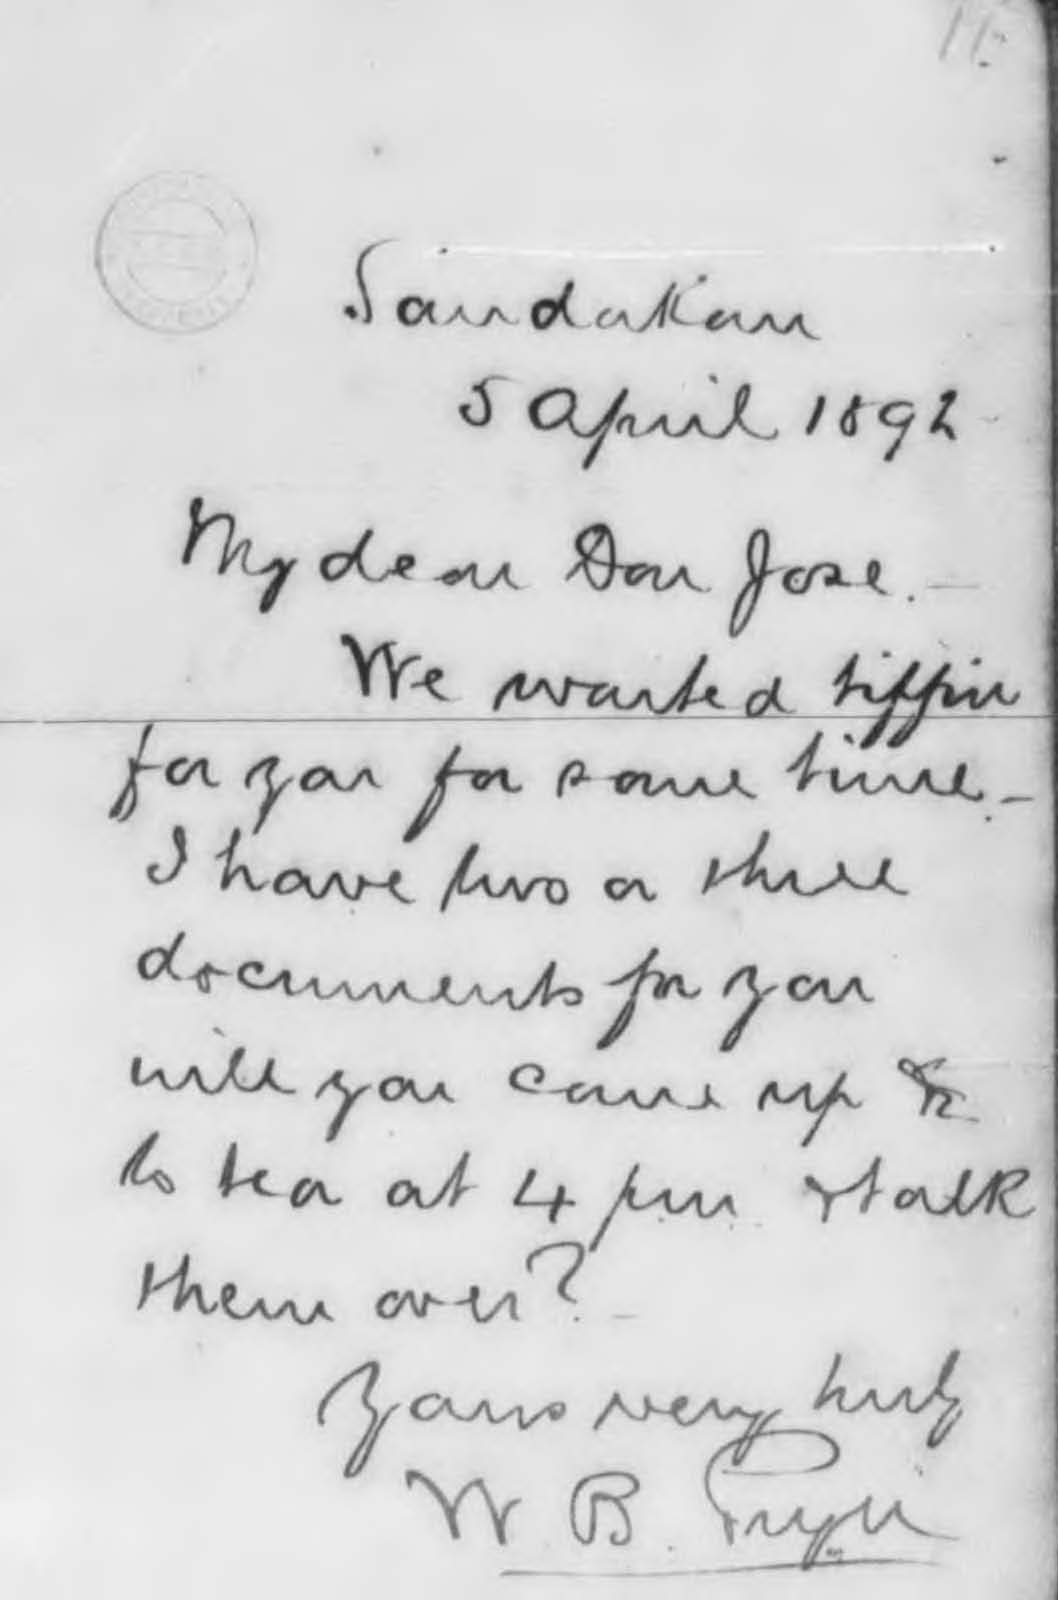 Sandakan
5 April 1892
My dear Don Jose. —
We waited tiffin
for you for some time. —
I have two or three
documents for you
will you come up &
to tea at 4 pm & talk
them over?
Yours very truly
W. B. Pryer